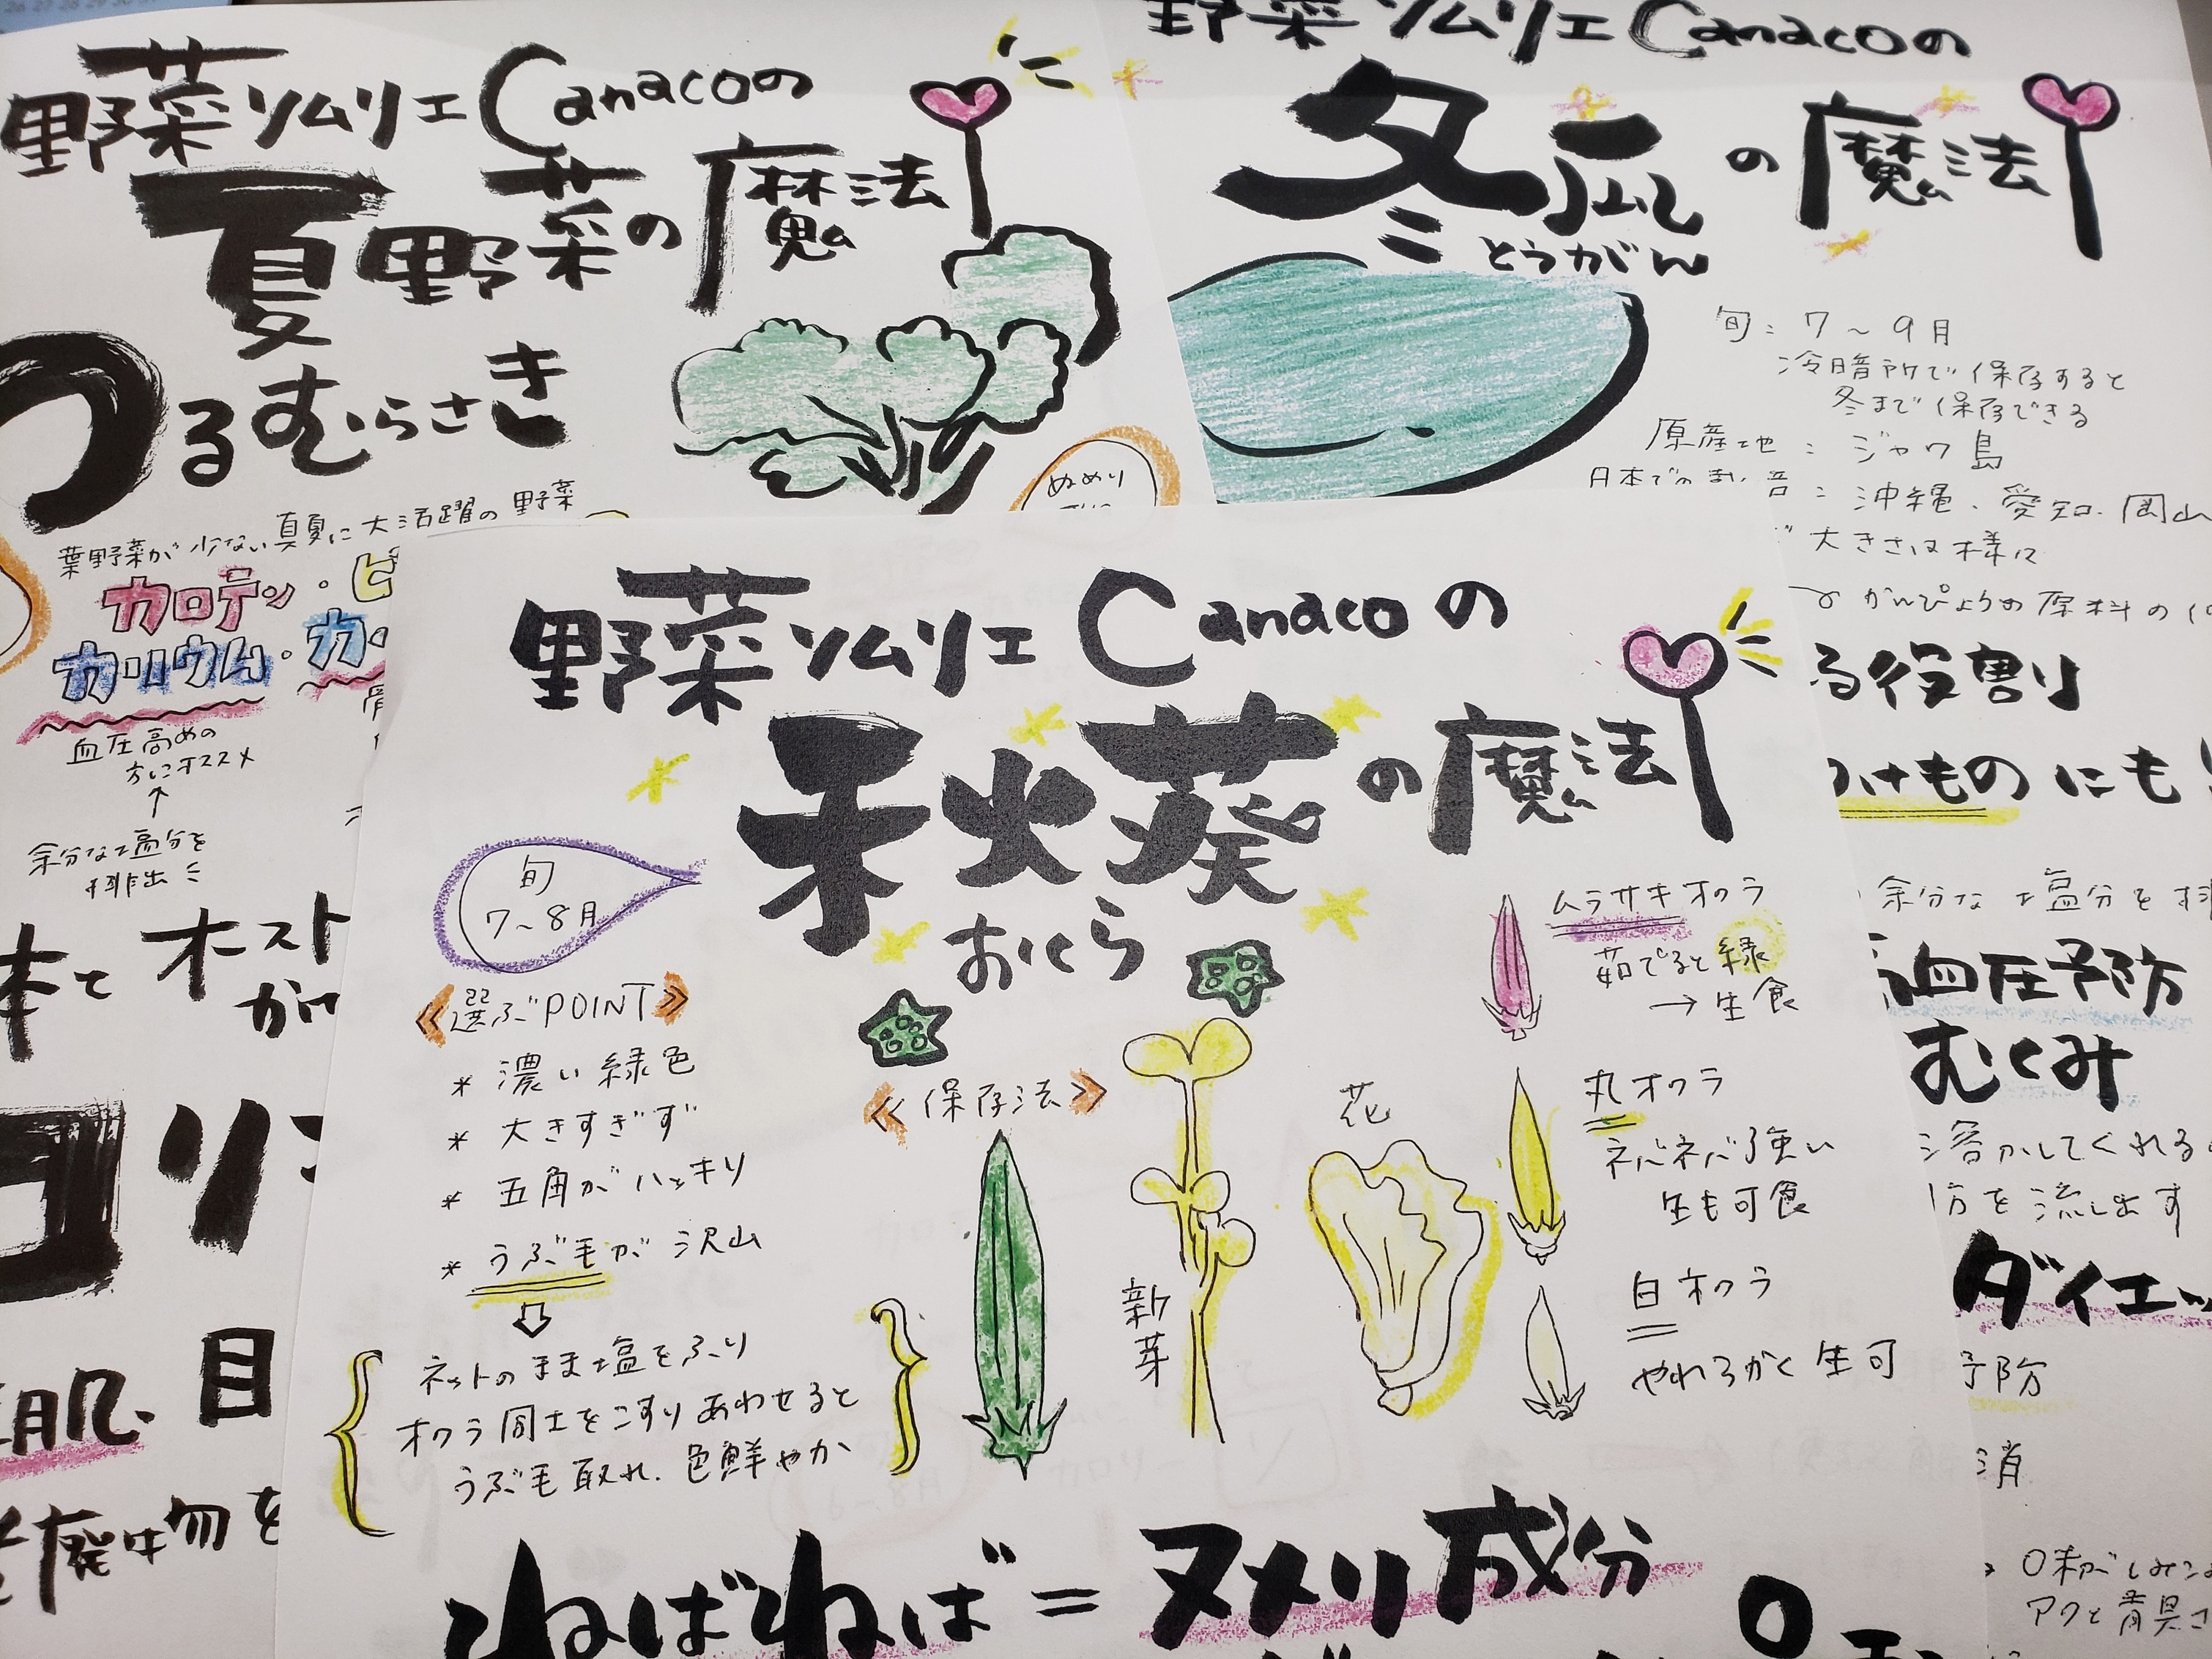 野菜ソムリエCanacoの
夏野菜の魔法
つるむらさき
葉野菜が少ない真夏に大活躍の野菜
カロテン・ビ
カリウム・カ
血圧高めの
方にオススメ
余分な塩分を
排出
ぬめり
オースト
が
コリ
肌 目
廃物を
野菜ソムリエCanacoの
冬瓜の魔法
とうがん
旬:7〜9月
冷暗所で保存すると
冬まで保存できる
原産地:ジャワ島
日本での
沖縄、愛知、岡山
大きさは様々
かんぴょうの原料の
る役割
つけものにも
余分な塩分を排
高血圧予防
むくみ
溶かしてくれる
分を流し出す
ダイエッ
予防
消
アクと青臭さ
野菜ソムリエCanacoの
秋葵の魔法
おくら
旬
7〜8月
《選ぶPOINT》
* 濃い緑色
* 大きすぎず
* 五角がハッキリ
* うぶ毛が沢山
ネットのまま塩をふり
オクラ同士をこすりあわせると
うぶ毛取れ、色鮮やか
《保存法》
新芽
花
ムラサキオクラ
茹でると緑
→生食
丸オクラ
ネバネバ強い
生も可食
白オクラ
やわらかく生可
ねばねば=ヌメリ成分